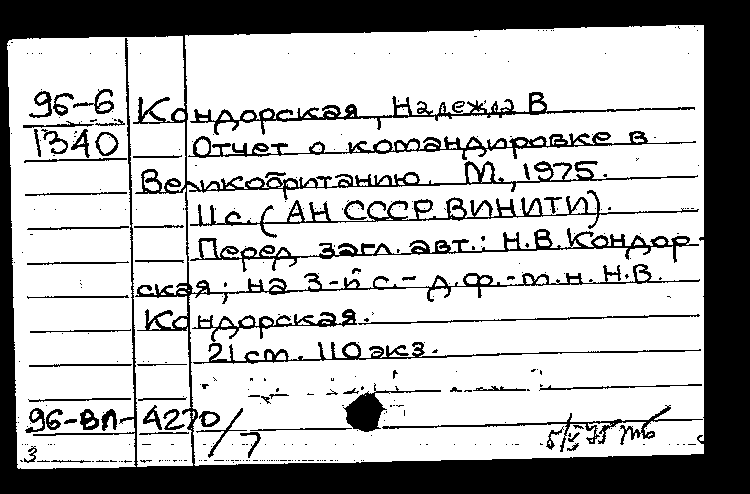 96-6 Кондорская, Надежда В
1340 Отчет о командировке в
Великобританию. М., 1975.
11 с. (АН СССР. ВИНИТИ).
Перед загл. авт.: Н.В. Кондор-
ская; на 3-й с.- д.ф.-м.н. Н.В.
Кондорская.
21 см. 110 экз.
96-ВЛ-4270/7
3